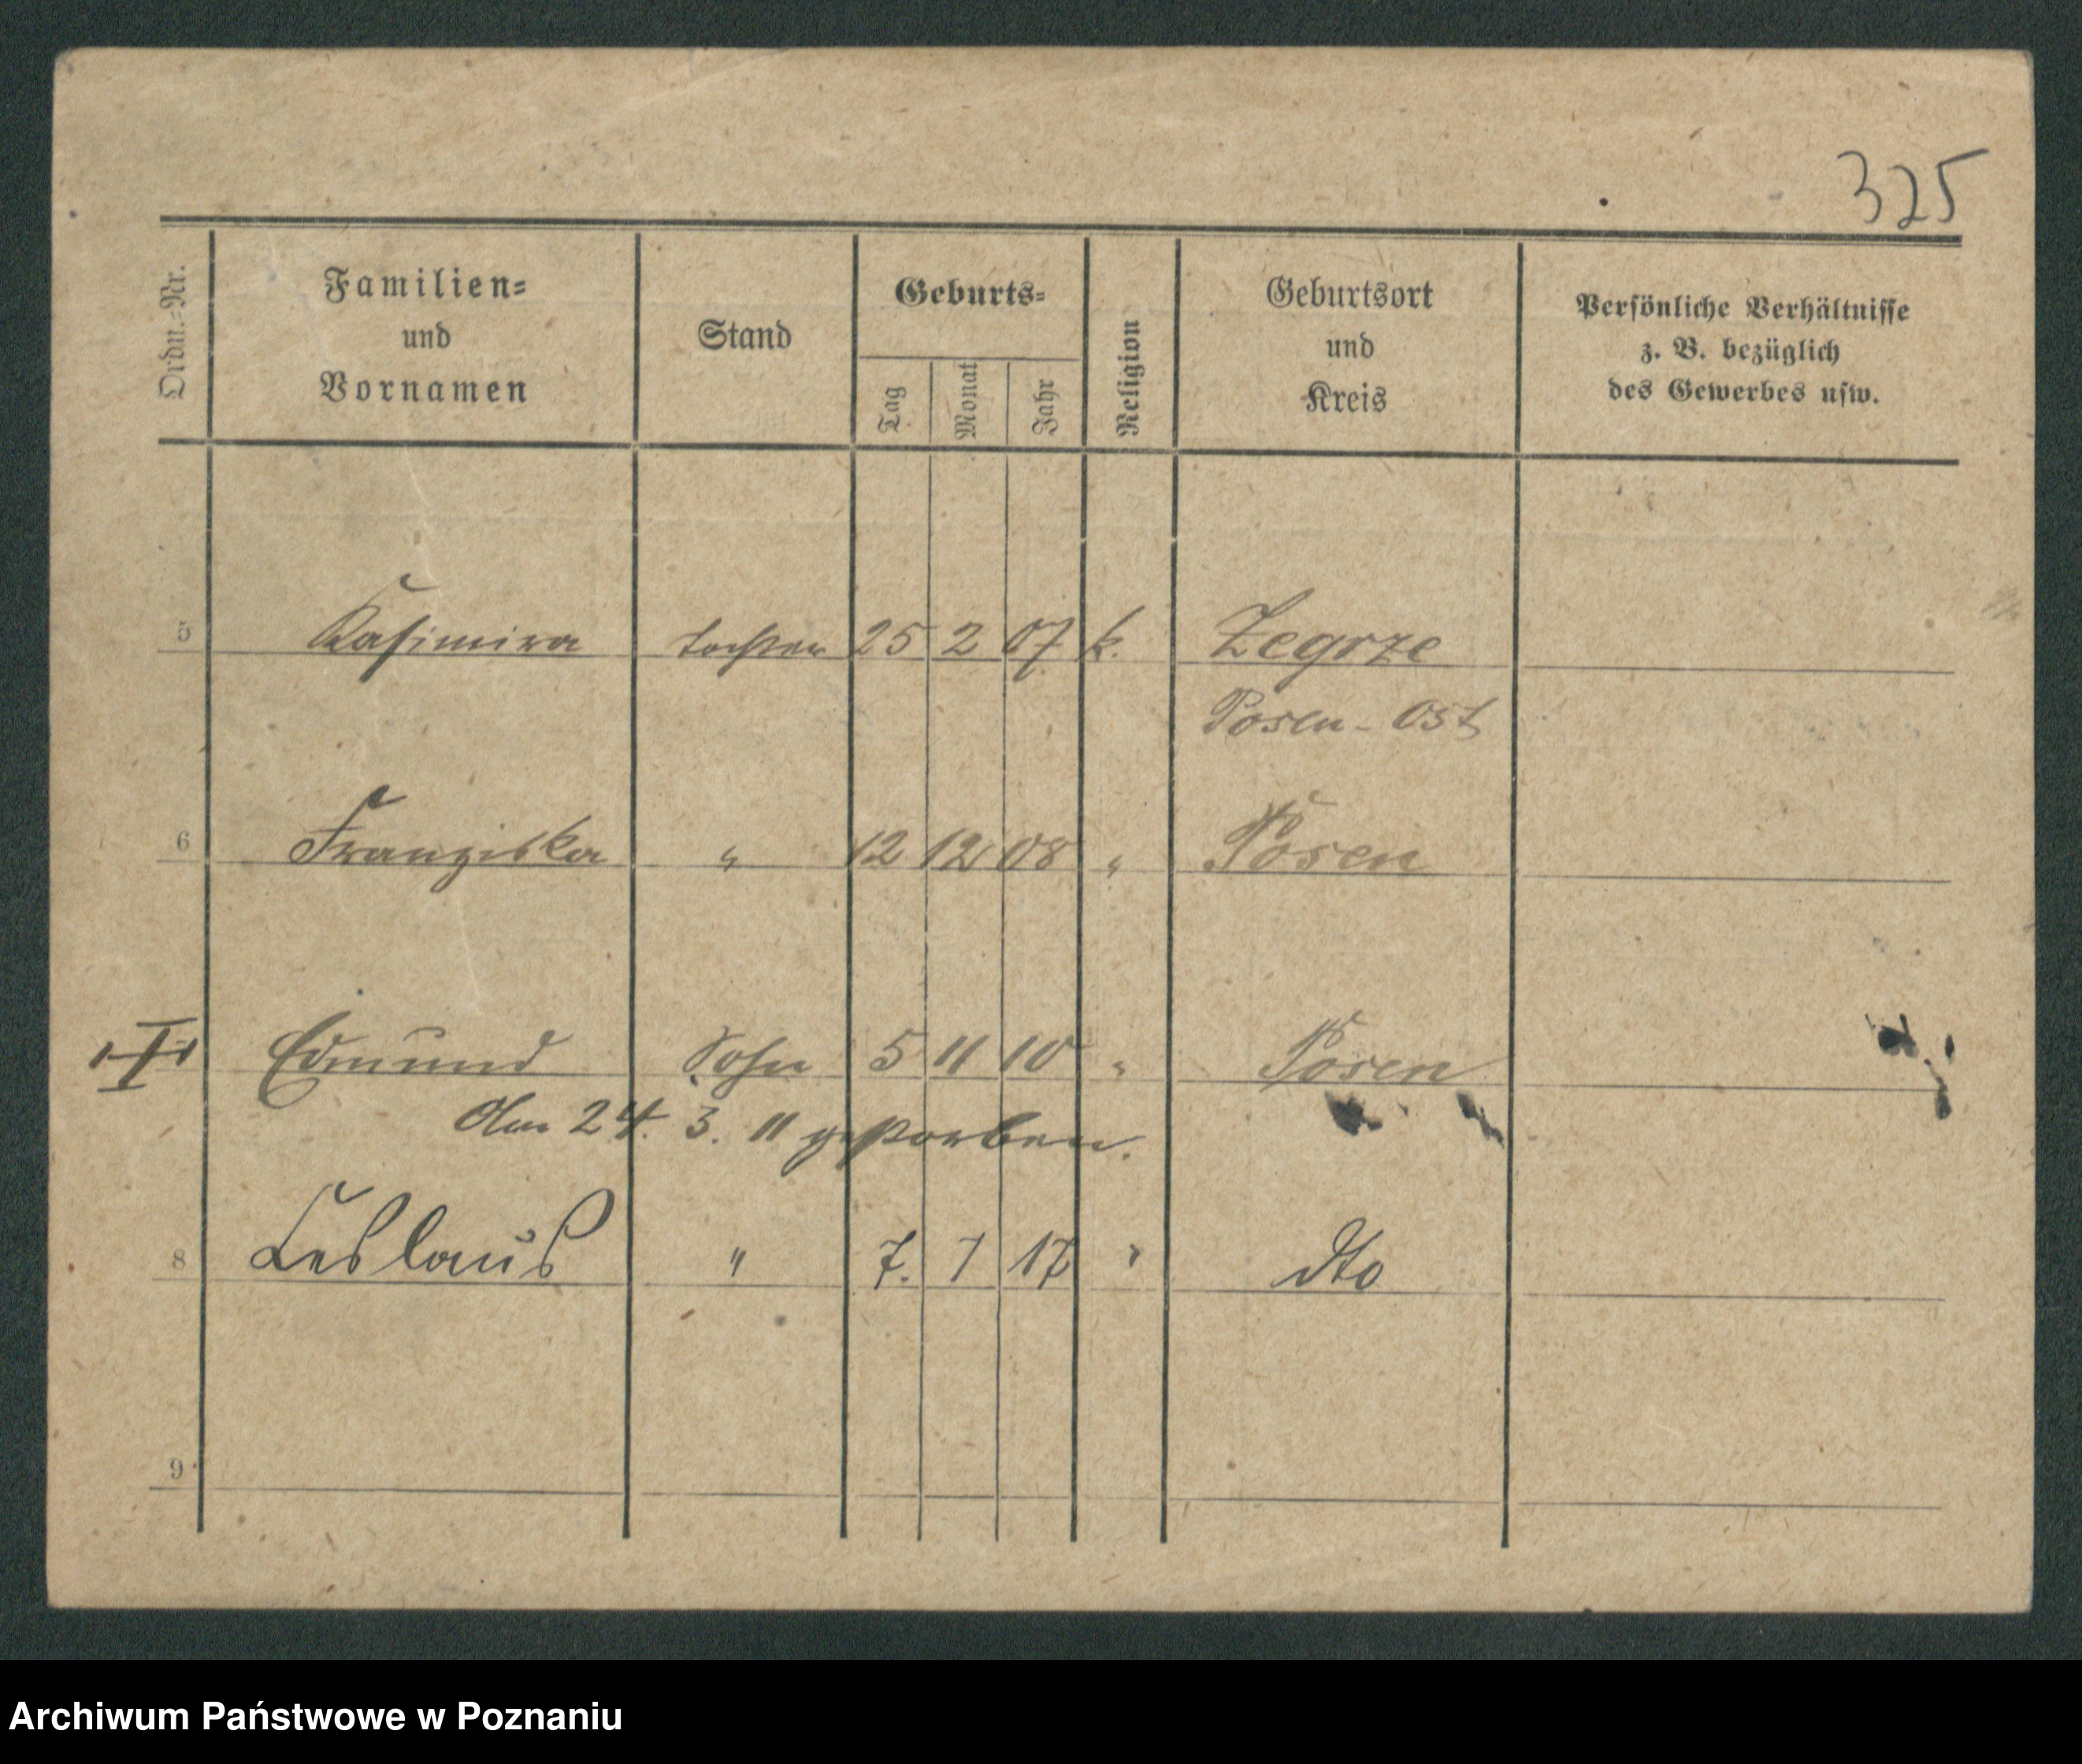 325
Ordn.-Nr. Familien- und Vornamen Stand Geburts- Tag Monat Jahr Religion Geburtsort und Kreis Persönliche Verhältnisse z. B. bezüglich des Gewerbes usw.
5 Kasimira Tochter 25 2 07 k. Zegrze
Posen-Ost
6 Franziska " 12 12 08 " Posen
Edmund Sohn 5 11 10 " Posen
Am 24. 3. 11 gestorben.
8 Leslaus " 7. 1 17 " dto
9
Archiwum Państwowe w Poznaniu